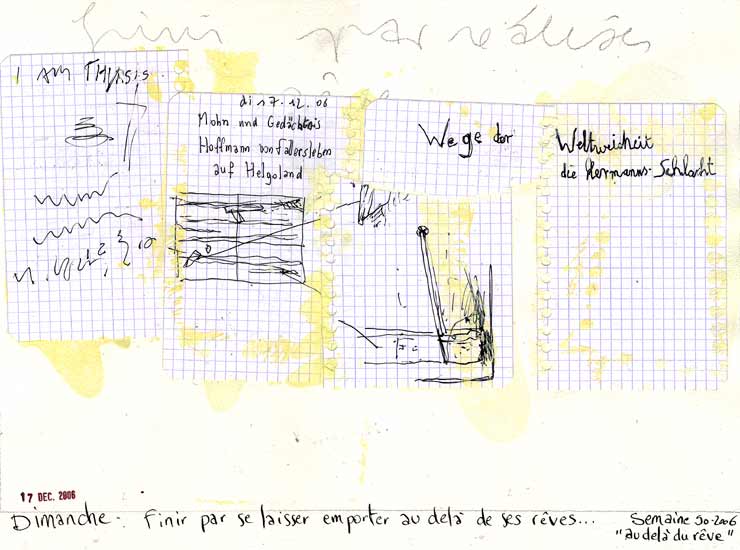 finir par
I AM
di 17.12.06
Mohn und Gedächtnis
Hoffmann von Fallersleben
auf Helgoland
Wege der Weltweisheit
die Hermanns-Schlacht
17 DEC. 2006
Dimanche: Finir par se laisser emporter au delà de ses rêves...
Semaine 50-2006
"au delà du rêve"